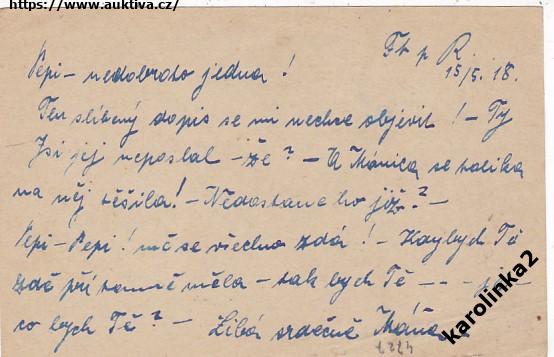 https://www.auktiva.cz/
Fr p R.
15/5. 18.
Pepi - nedobroto jedna!
Ten slíbený dopis se mi nechce objevit! - Ty
Jsi jej neposlal - že? - A Mánica se tolika
na něj těšila! - Nedostane ho již? -
Pepi - Pepi! mě se všechno zdá! - Kdybych Tě
zdě přítomně měla - tak bych Tě - - -
co bych Tě? - Líbá srdečně Máňa
karolinka2